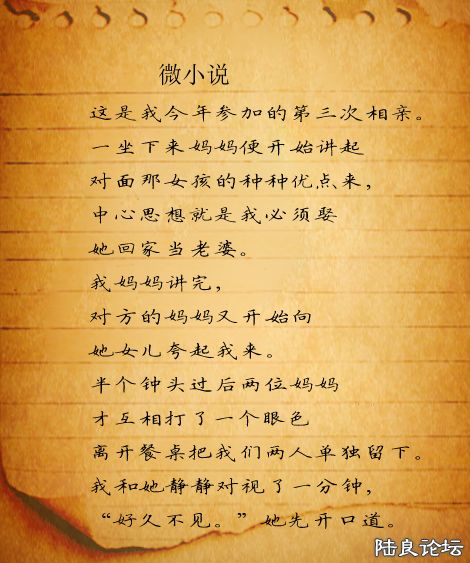 微小说
这是我今年参加的第三次相亲。
一坐下来妈妈便开始讲起
对面那女孩的种种优点来，
中心思想就是我必须娶
她回家当老婆。
我妈妈讲完，
对方的妈妈又开始向
她女儿夸起我来。
半个钟头过后两位妈妈
才互相打了一个眼色
离开餐桌把我们两人单独留下。
我和她静静对视了一分钟，
“好久不见。”她先开口道。
陆良论坛